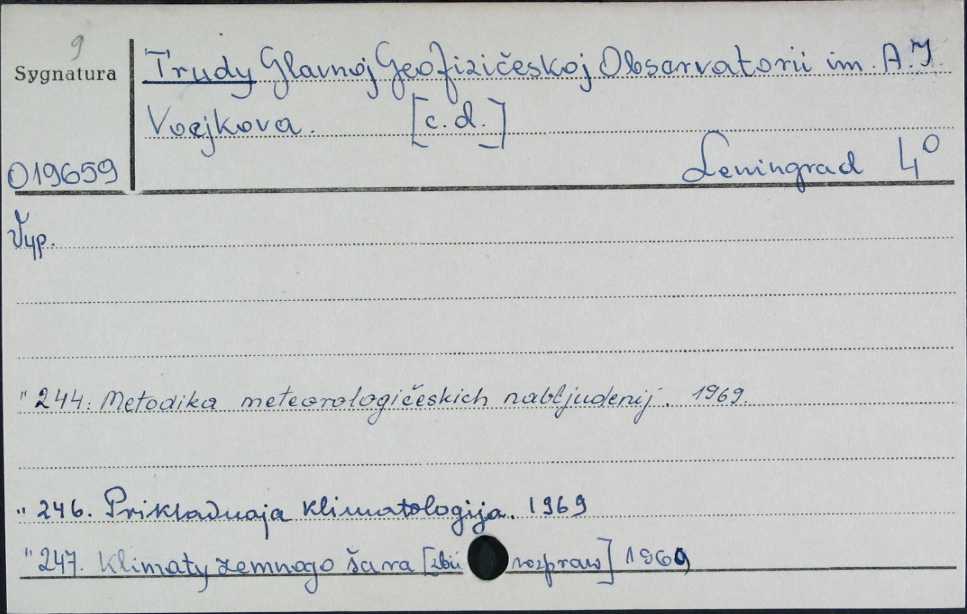 9
Sygnatura
Trudy Glavnoj Geofizičeskoj Observatorii im. A.I.
Voejkova. [c.d.]
019659
Leningrad 4°
Vyp.
" 244: Metodika meteorologičeskich nabljudenij. 1969.
" 246. Prikladnaja klimatologija. 1969
" 247. Klimaty zemnogo šara [zbiór rozpraw] 1969